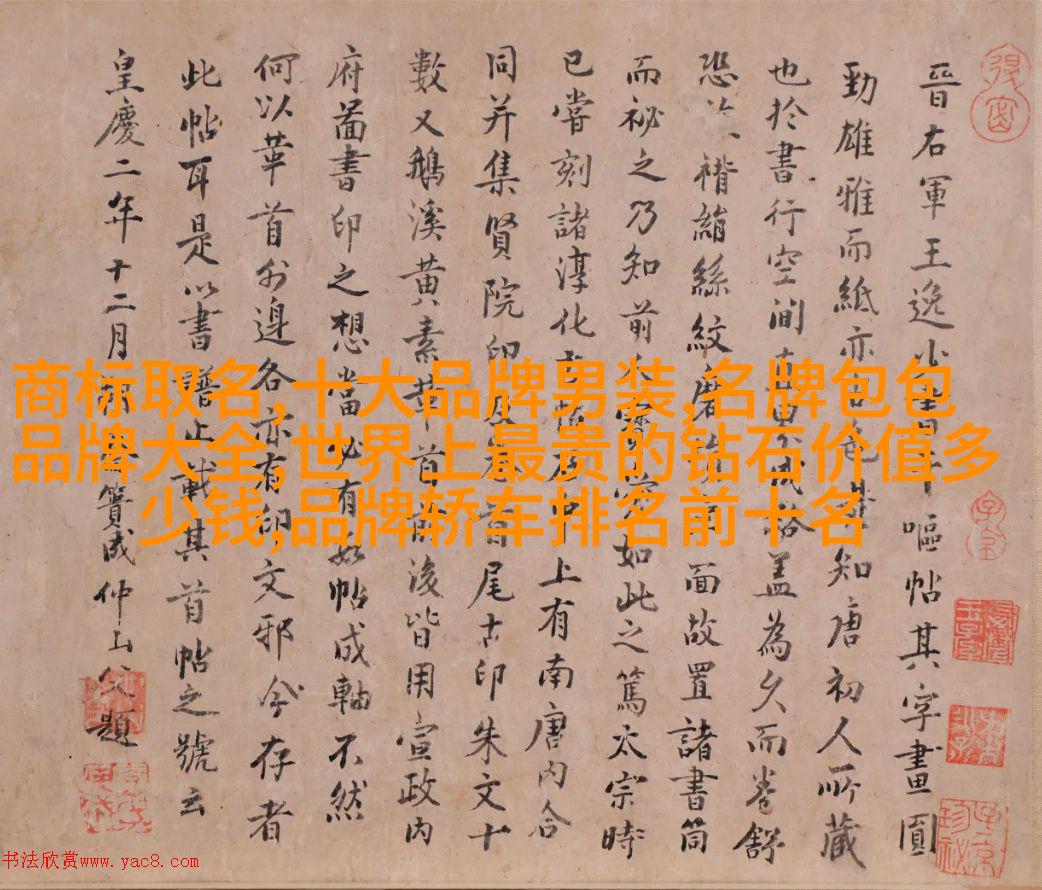 晋右軍王逸少嘔帖其字畫圓
勁雄雅而紙亦知唐初人所藏
也於書行空間盖為久而卷舒
恐褙絹絲紋磨面故置諸書筒
而祕之乃知前如此之篤太宗時
已嘗刻諸淳化中上有南唐内合
同并集賢院印尾古印朱文十
數又鵝溪黄素首後皆用宣政内
府啚書印之想當必有帖成軸不然
何以華首外邊各亦有印文邪今存者
此帖耳是以書譜止載其首帖之號云
皇慶二年十二月簣成仲山父題
商标取名,十大品牌男装,名牌包包
品牌大全,世界上最贵的钻石价值多
少钱,品牌轿车排名前十名
书法欣赏www.yac8.com